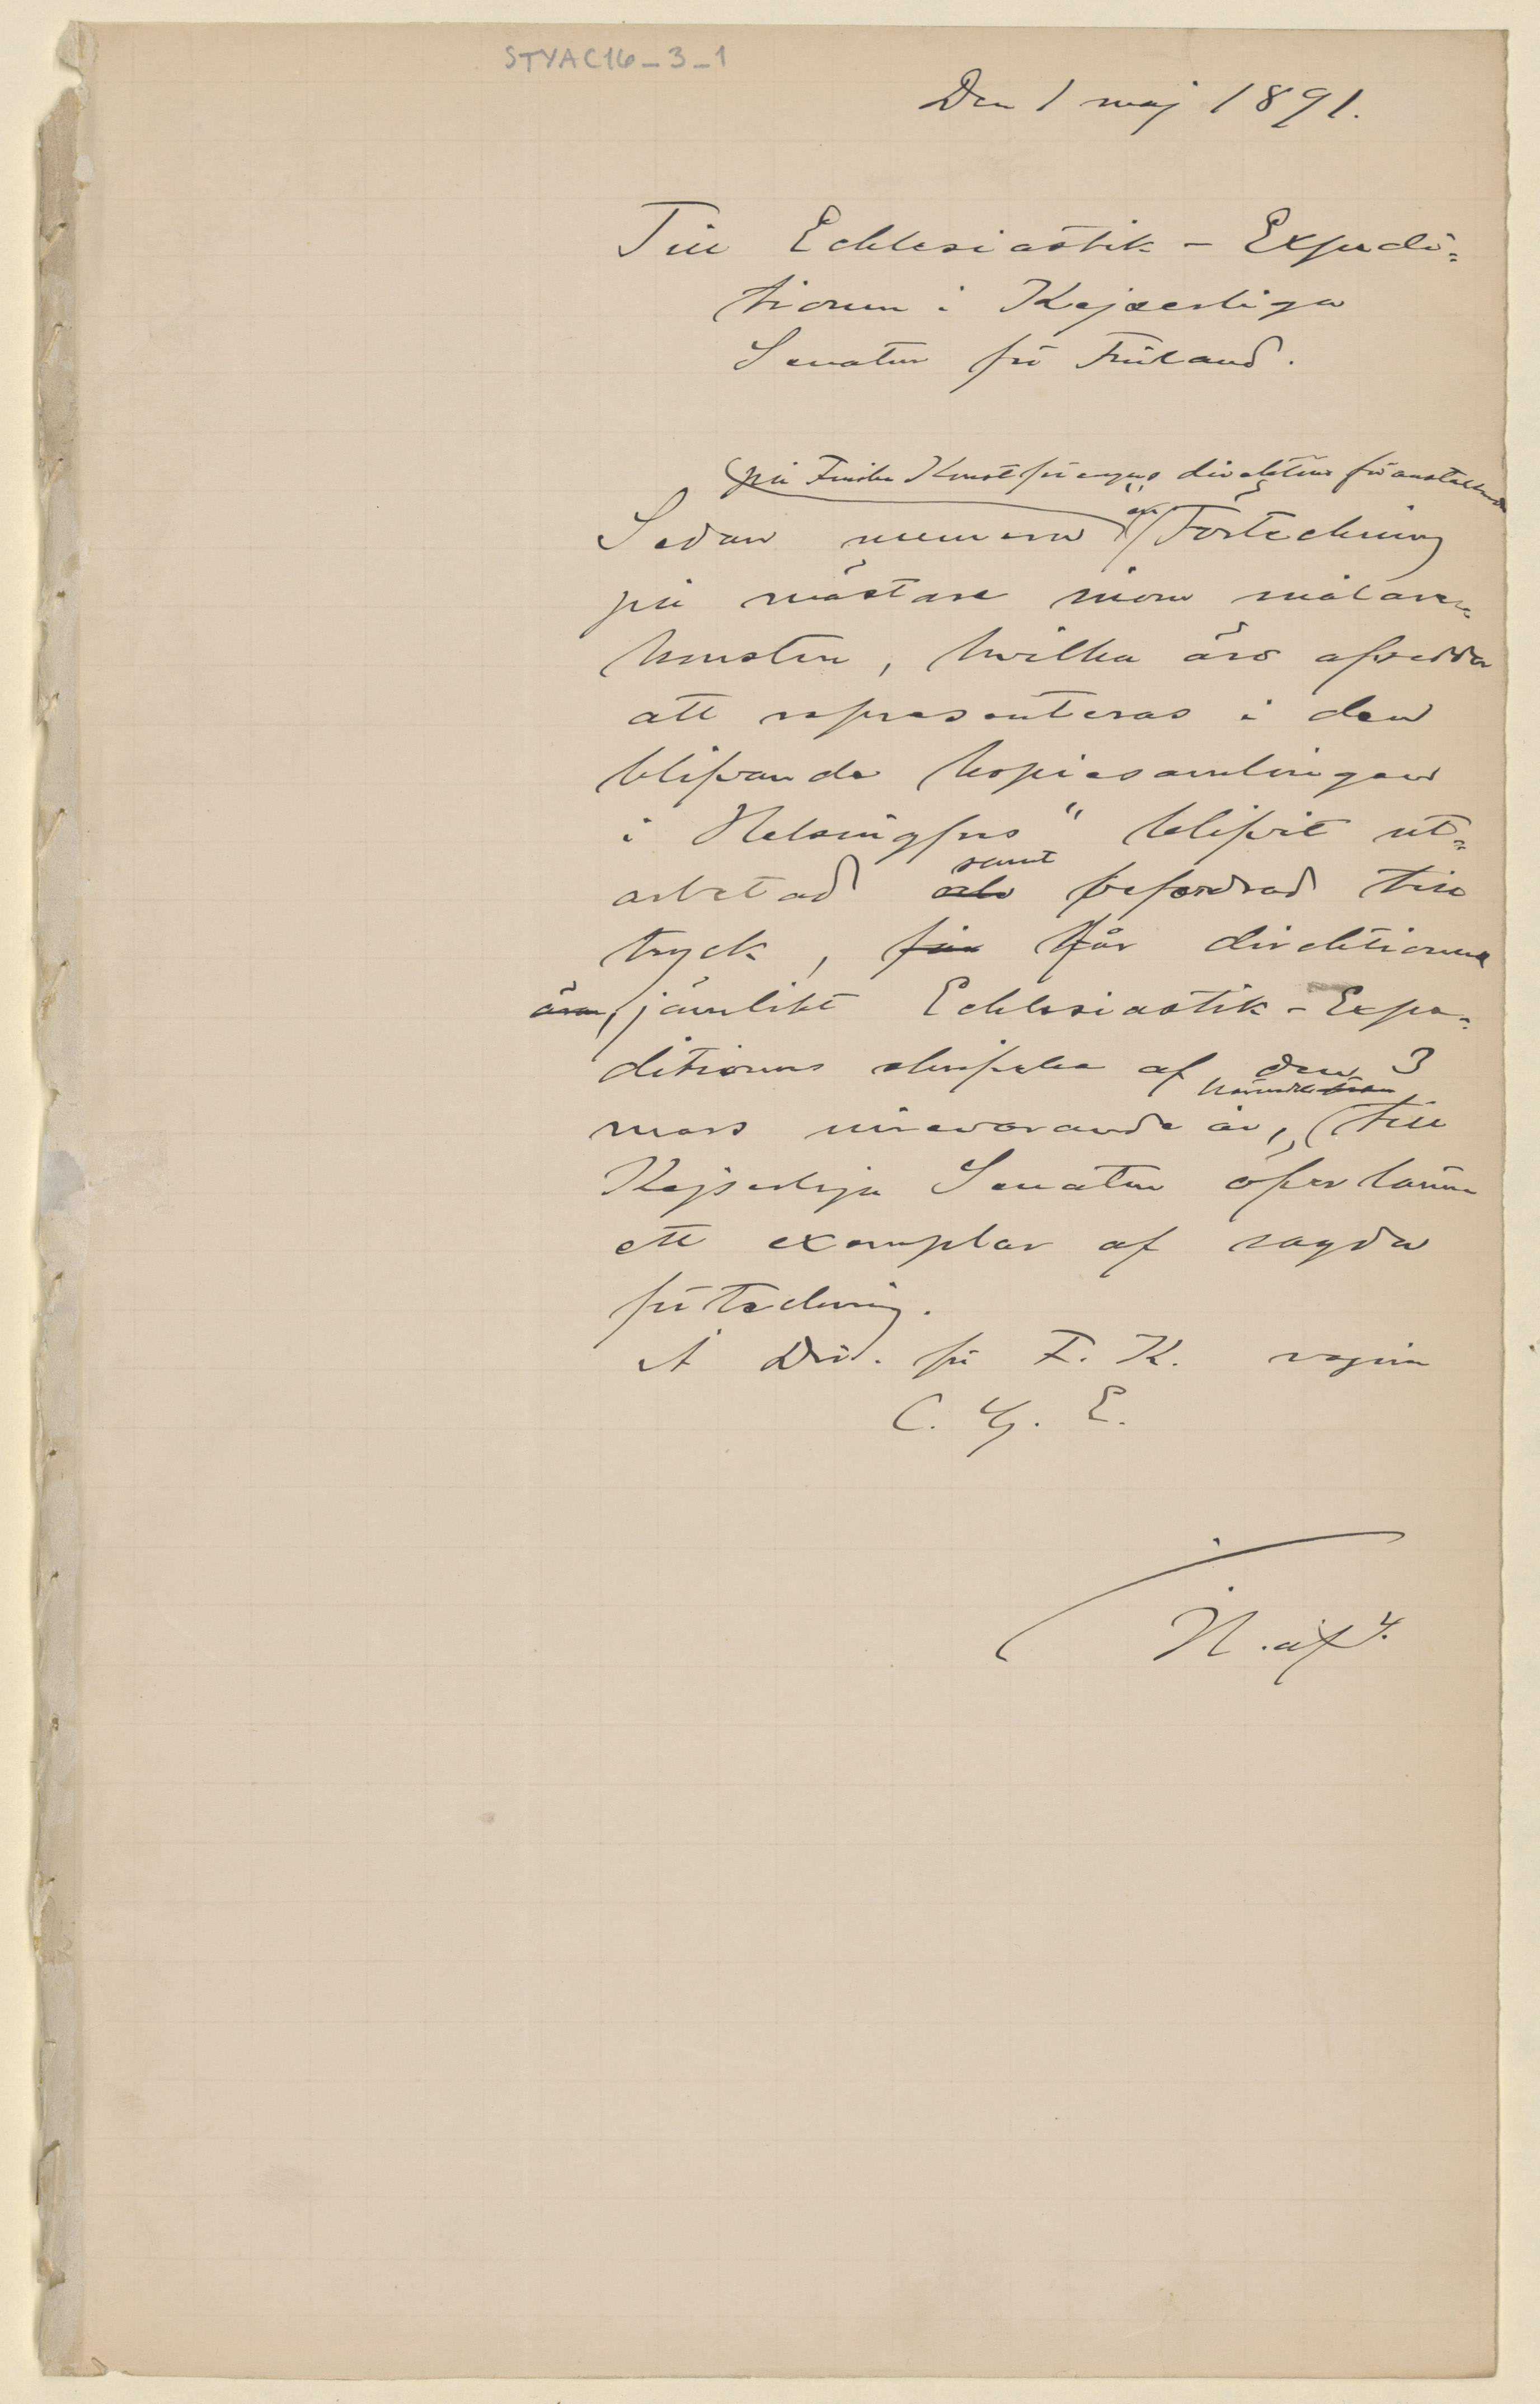 STYAC16_3_1
Den 1 maj 1891.
Till Ecklesiastik-Expedi=
tionen i Kejserliga
Senaten för Finland.
på Finska Konstföreningens direktions föranstaltande
Sedan numera en "Förteckning
på mästare inom målare=
konsten, hvilka äro afsedda
att representeras i den
blifvande kopiesamlingen
i Helsingfors" blifvit ut=
arbetad och samt befordrad till
tryck, får får direktionen
äran, jämlikt Ecklesiastik-Expe=
ditionens skrifvelse af den 3
mars innevarande år, härmedels till
Kejserliga Senaten öfverlämna
ett exemplar af sagda
förteckning.
Å Dir. för F. K. vägnar
C. G. E.